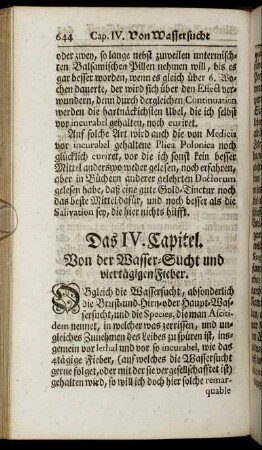 644 Cap. IV. Von Wassersucht
oder zwey, so lange nebst zuweilen untermisch-
ten Balsamischen Pillen nehmen will, bis es
gar besser worden, wenn es gleich über 6. Wo-
chen dauerte, der wird sich über den Effect ver-
wundern, denn durch dergleichen Continuation
werden die hartnäckichsten Übel, die ich selbst
vor incurabel gehalten, noch curiret.
Auf solche Art wird auch die von Medicis
vor incurabel gehaltene Plica Polonica noch
glücklich curiret, vor die ich sonst kein besser
Mittel anderswo weder gelesen, noch erfahren,
aber in Büchern anderer gelehrten Doctorum
gelesen habe, daß eine gute Gold-Tinctur noch
das beste Mittel dafür, und noch besser als die
Salivation sey, die hier nichts hilfft.
Das IV. Capitel.
Von der Wasser-Sucht und
viertägigen Fieber.
OBgleich die Wassersucht, absonderlich
die Brust-und-Hirn-oder Haupt-Was-
sersucht, und die Species, die man Ascit-
dem nennet, in welcher was zerrissen, und un-
gleiches Zunehmen des Leibes zu spüren ist, ins-
gemein vor lethal und vor so incurabel, wie das
4tägige Fieber, (auf welches die Wassersucht
gerne folget, oder mit der sie vergesellschafftet ist)
gehalten wird, so will ich doch hier solche remar-
quable